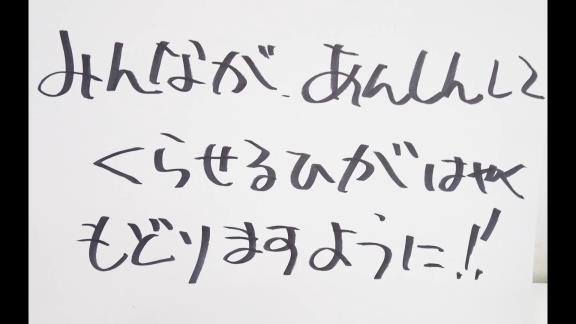 みんなが、あんしんして
くらせるひがはやく
もどりますように!!